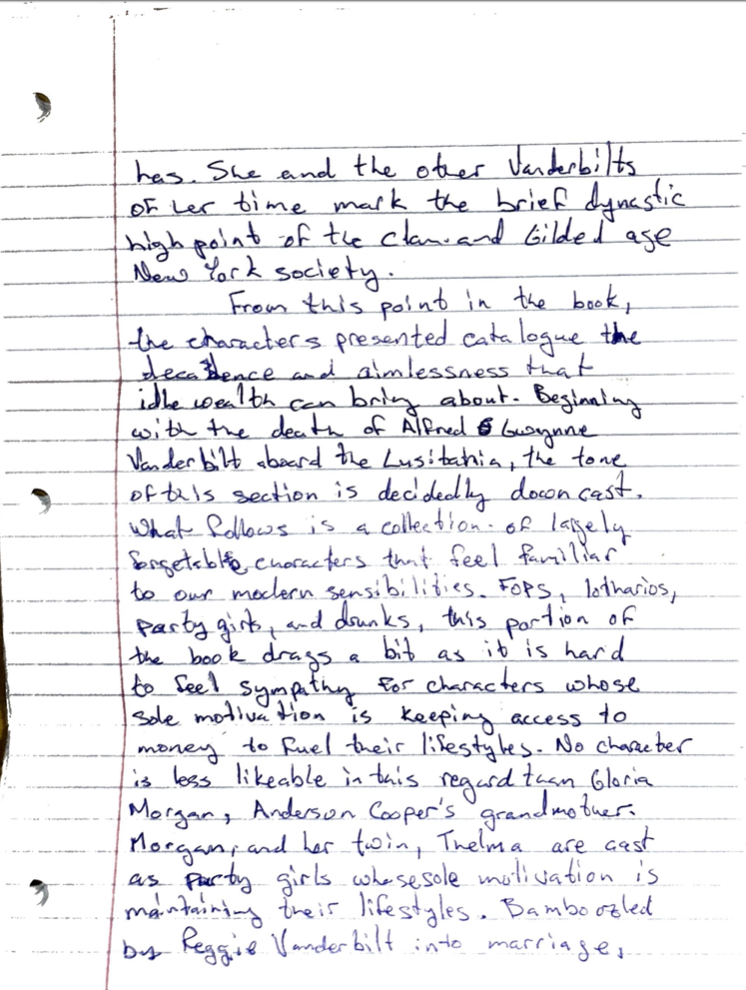 has. She and the other Vanderbilts
of her time mark the brief dynastic
high point of the clan and Gilded age
New York society.
From this point in the book,
the characters presented catalogue the
decadence and aimlessness that
idle wealth can bring about. Beginning
with the death of Alfred Gwynne
Vanderbilt aboard the Lusitania, the tone
of this section is decidedly down cast.
What follows is a collection of largely
forgetable characters that feel familiar
to our modern sensibilities. Fops, lotharios,
party girls, and drunks, this portion of
the book drags a bit as it is hard
to feel sympathy for characters whose
sole motivation is keeping access to
money to fuel their lifestyles. No character
is less likeable in this regard than Gloria
Morgan, Anderson Cooper's grandmother.
Morgan, and her twin, Thelma are cast
as party girls whose sole motivation is
maintaining their lifestyles. Bamboozled
by Reggie Vanderbilt into marriage,